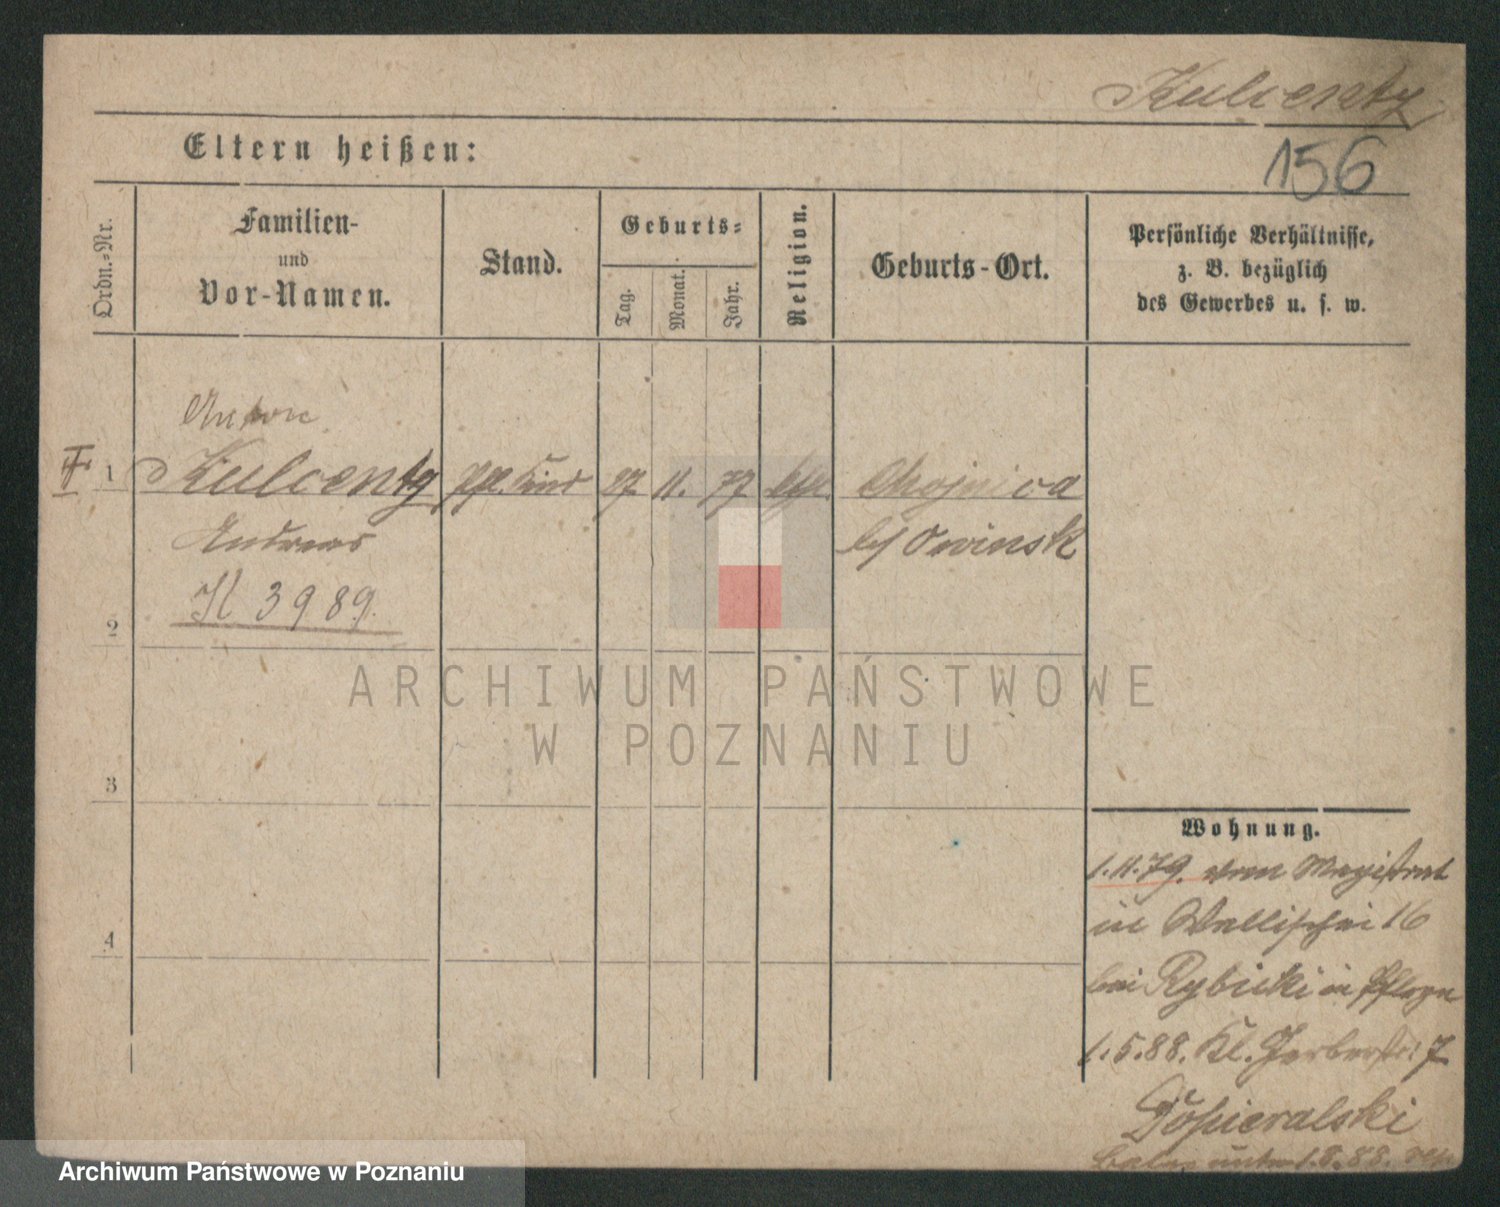 Kulcentz
156
Eltern heißen:
Ordn.-Nr.
Familien-
und
Vor-Namen.
Stand.
Geburts-
Tag.
Monat.
Jahr.
Religion.
Geburts-Ort.
Persönliche Verhältnisse,
z. B. bezüglich
des Gewerbes u. s. w.
Anton
1 Kulcentz Pfl. Kind 27 11. 77 kath. Chojnica
Andreas bei Owinsk
K 3989.
2
3
4
ARCHIWUM PAŃSTWOWE
W POZNANIU
Wohnung.
1.11.79. vom Magistrat
in Wallischei 16
bei Rybicki in Pflege
1.5.88. Kl. Gerberstr. 7
Topieralski
1.8.88.
Archiwum Państwowe w Poznaniu